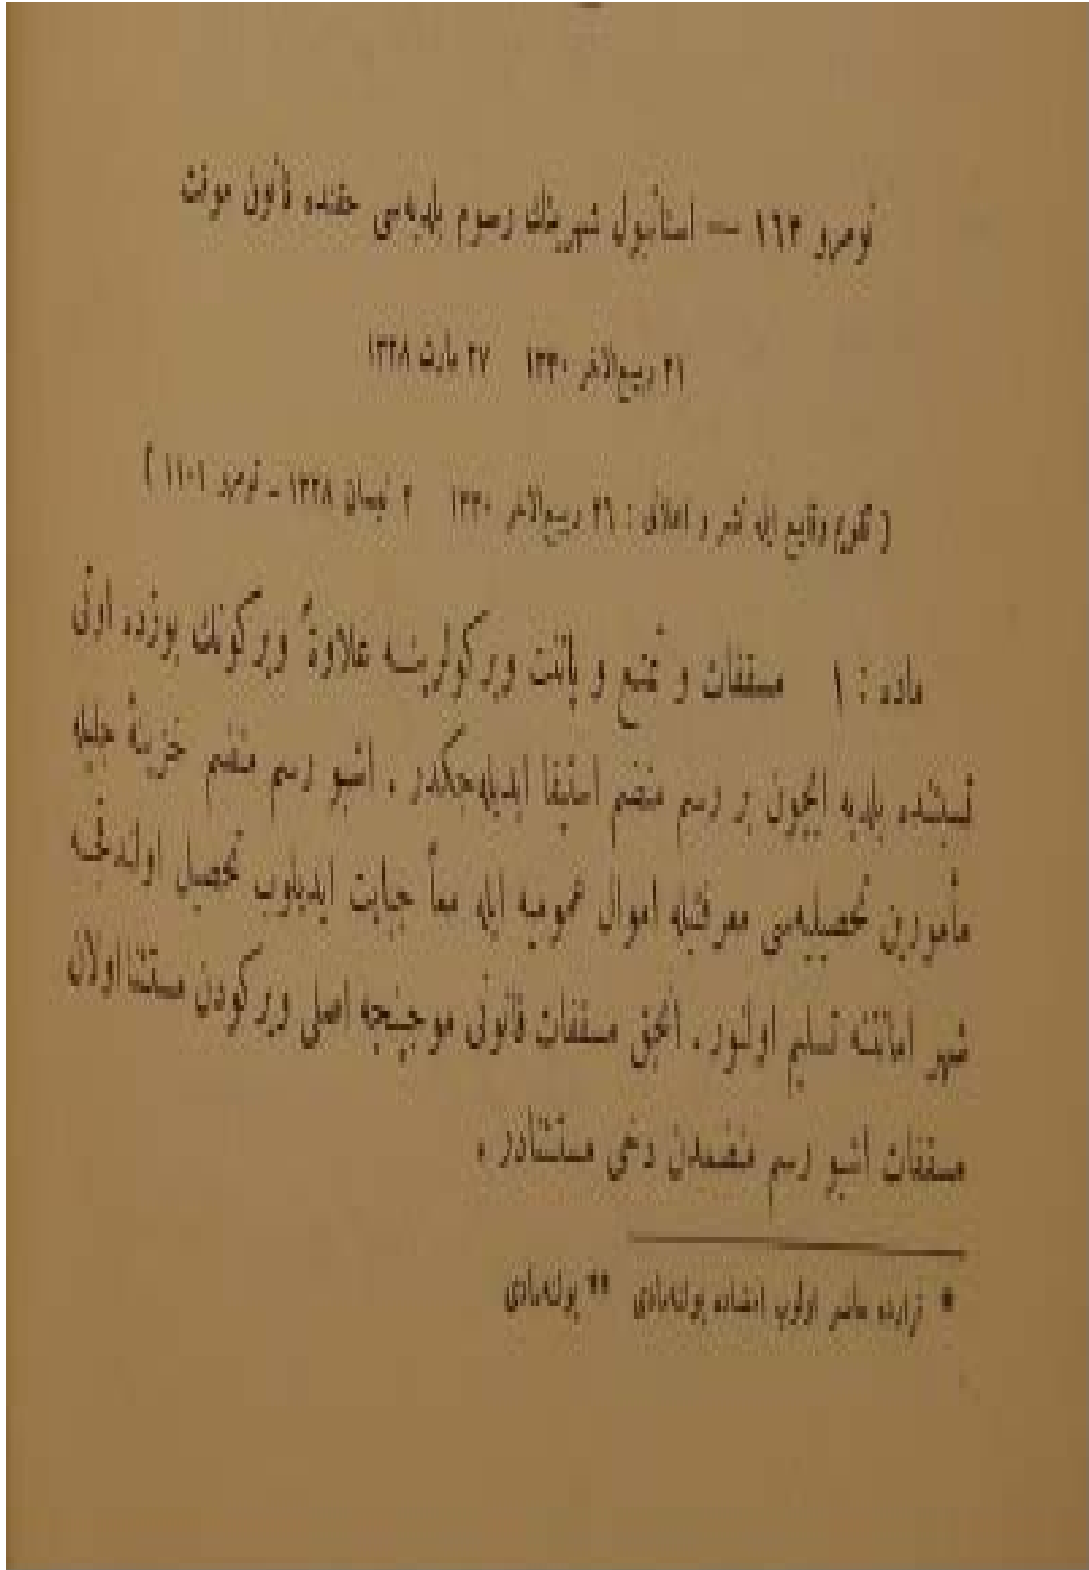 نومرو ١٦٣ — استانبول شهرینك رسوم بلدیه‌سی حقنده قانون موقت
٢١ ربیع‌الآخر ١٣٣٠ ٢٧ مارت ١٣٢٨
( تقویم وقایع ایله نشر و اعلانی : ٢٦ ربیع‌الآخر ١٣٣٠ ٢ نیسان ١٣٢٨ ـ نومرو ١١٠١ )
ماده : ١ مسقفات و تمتع و پاتنت ویركولرینه علاوةً ویركونك یوزده اونی
نسبتنده بلدیه ایچون بر رسم منضم استیفا ایدیله‌جكدر . اشبو رسم منضم خزینهٔ جلیله
مأمورین تحصیلیه‌سی معرفتیله اموال عمومیه ایله معاً جبایت ایدیلوب تحصیل اولندقجه
شهر امانتنه تسلیم اولنور . آنجق مسقفات قانونی موجبنجه اصلی ویركودن مستثنا اولان
مسقفات اشبو رسم منضمدن دخی مستثنادر .
* حاضر اولوب امضاده بولنه‌مادی ** بولنه‌مادی